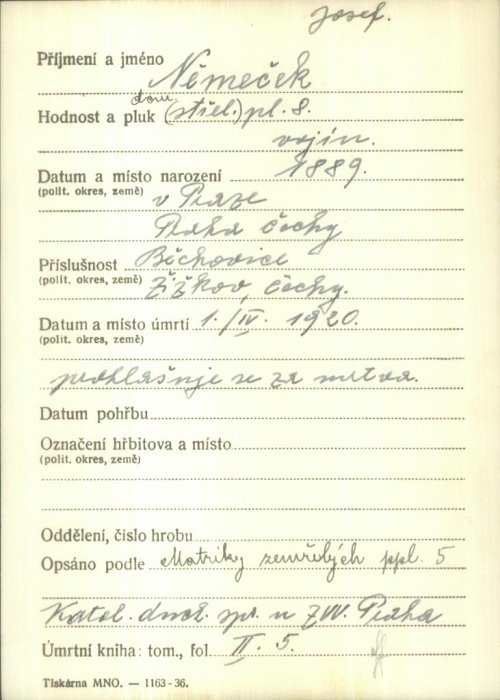 Josef.
Příjmení a jméno Němeček
dom.
Hodnost a pluk (střel.) pl. 8.
vojín.
Datum a místo narození 1889.
(polit. okres, země) v Praze
Praha čechy
Příslušnost Běchovice
(polit. okres, země) Žižkov, čechy.
Datum a místo úmrtí 1./IV. 1920.
(polit. okres, země)
prohlašuje se za mrtva.
Datum pohřbu
Označení hřbitova a místo
(polit. okres, země)
Oddělení, číslo hrobu
Opsáno podle Matriky zemřelých ppl. 5
Katol. duch. spr. u ZVV. Praha
Úmrtní kniha: tom., fol. II. 5.
Tiskárna MNO. — 1163-36.